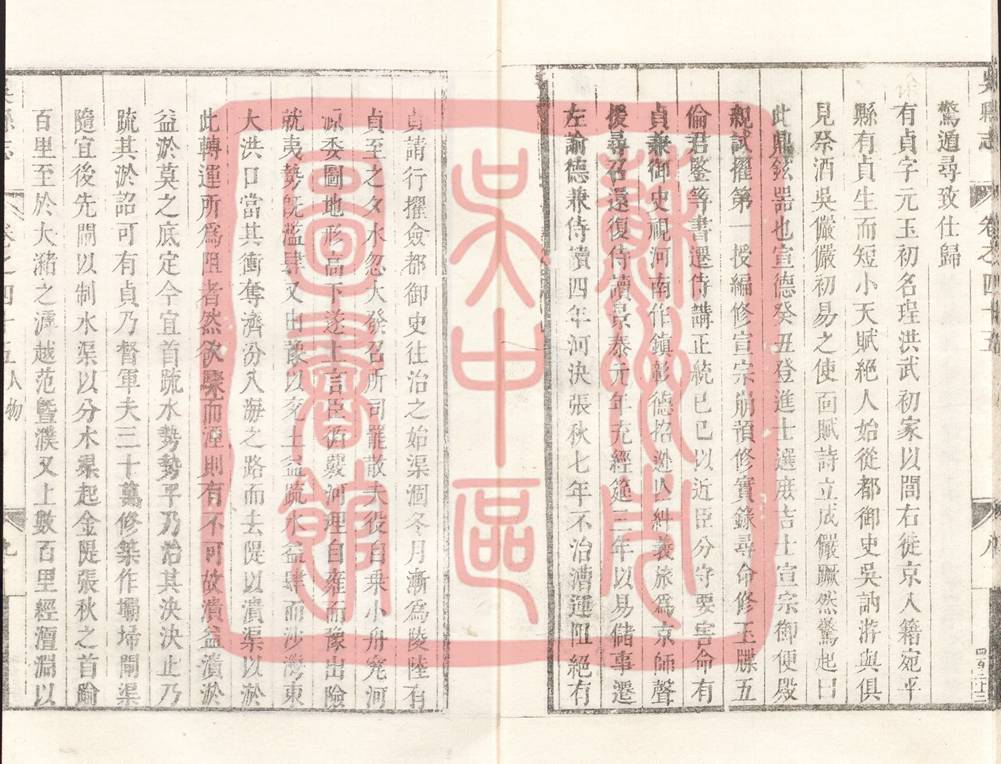 吳縣志 卷之四十五
驚遁尋致仕歸
有貞字元玉初名珵洪武初家以閭右徙京入籍宛平
縣有貞生而短小天賦絕人始從都御史吳訥游與俱
見祭酒吳儼儼初易之使面賦詩立成儼蹶然驚起曰
此鼎鉉器也宣德癸丑登進士選庶吉士宣宗御便殿
親試擢第一授編修宣宗崩預修實錄尋命修玉牒五
倫君鑒等書遷侍講正統己巳以近臣分守要害命有
貞兼御史視河南作鎮彰德招逊以糾義旅為京師聲
援尋召還復侍讀景泰元年充經筵三年以易儲事遷
左諭德兼侍讀四年河決張秋七年不治漕運阻絕有
貞請行擢僉都御史往治之始渠涸冬月漸為陵陸有
貞至之夕水忽大發召所司罷散夫役自乘小舟究河
源委圖地形高下遂上言臣循覈河理自雍而豫出險
就夷勢既濫肆又由豫以兗土益疏水益肆而沙灣東
大洪口當其衝奪濟汾入海之路而去隄以潰渠以淤
此轉運所為阻者然欲驟而湮則有不可故潰益潰淤
益淤莫之底定今宜首疏水勢勢平乃治其決決止乃
疏其淤詔可有貞乃督軍夫三十萬修築作壩埽閘渠
隨宜後先閘以制水渠以分水渠起金隄張秋之首踰
百里至於大瀦之潭越范暨濮又上數百里經澶淵以
吳縣志 卷之四十五人物 九
蘇州市
吳中區
圖書館